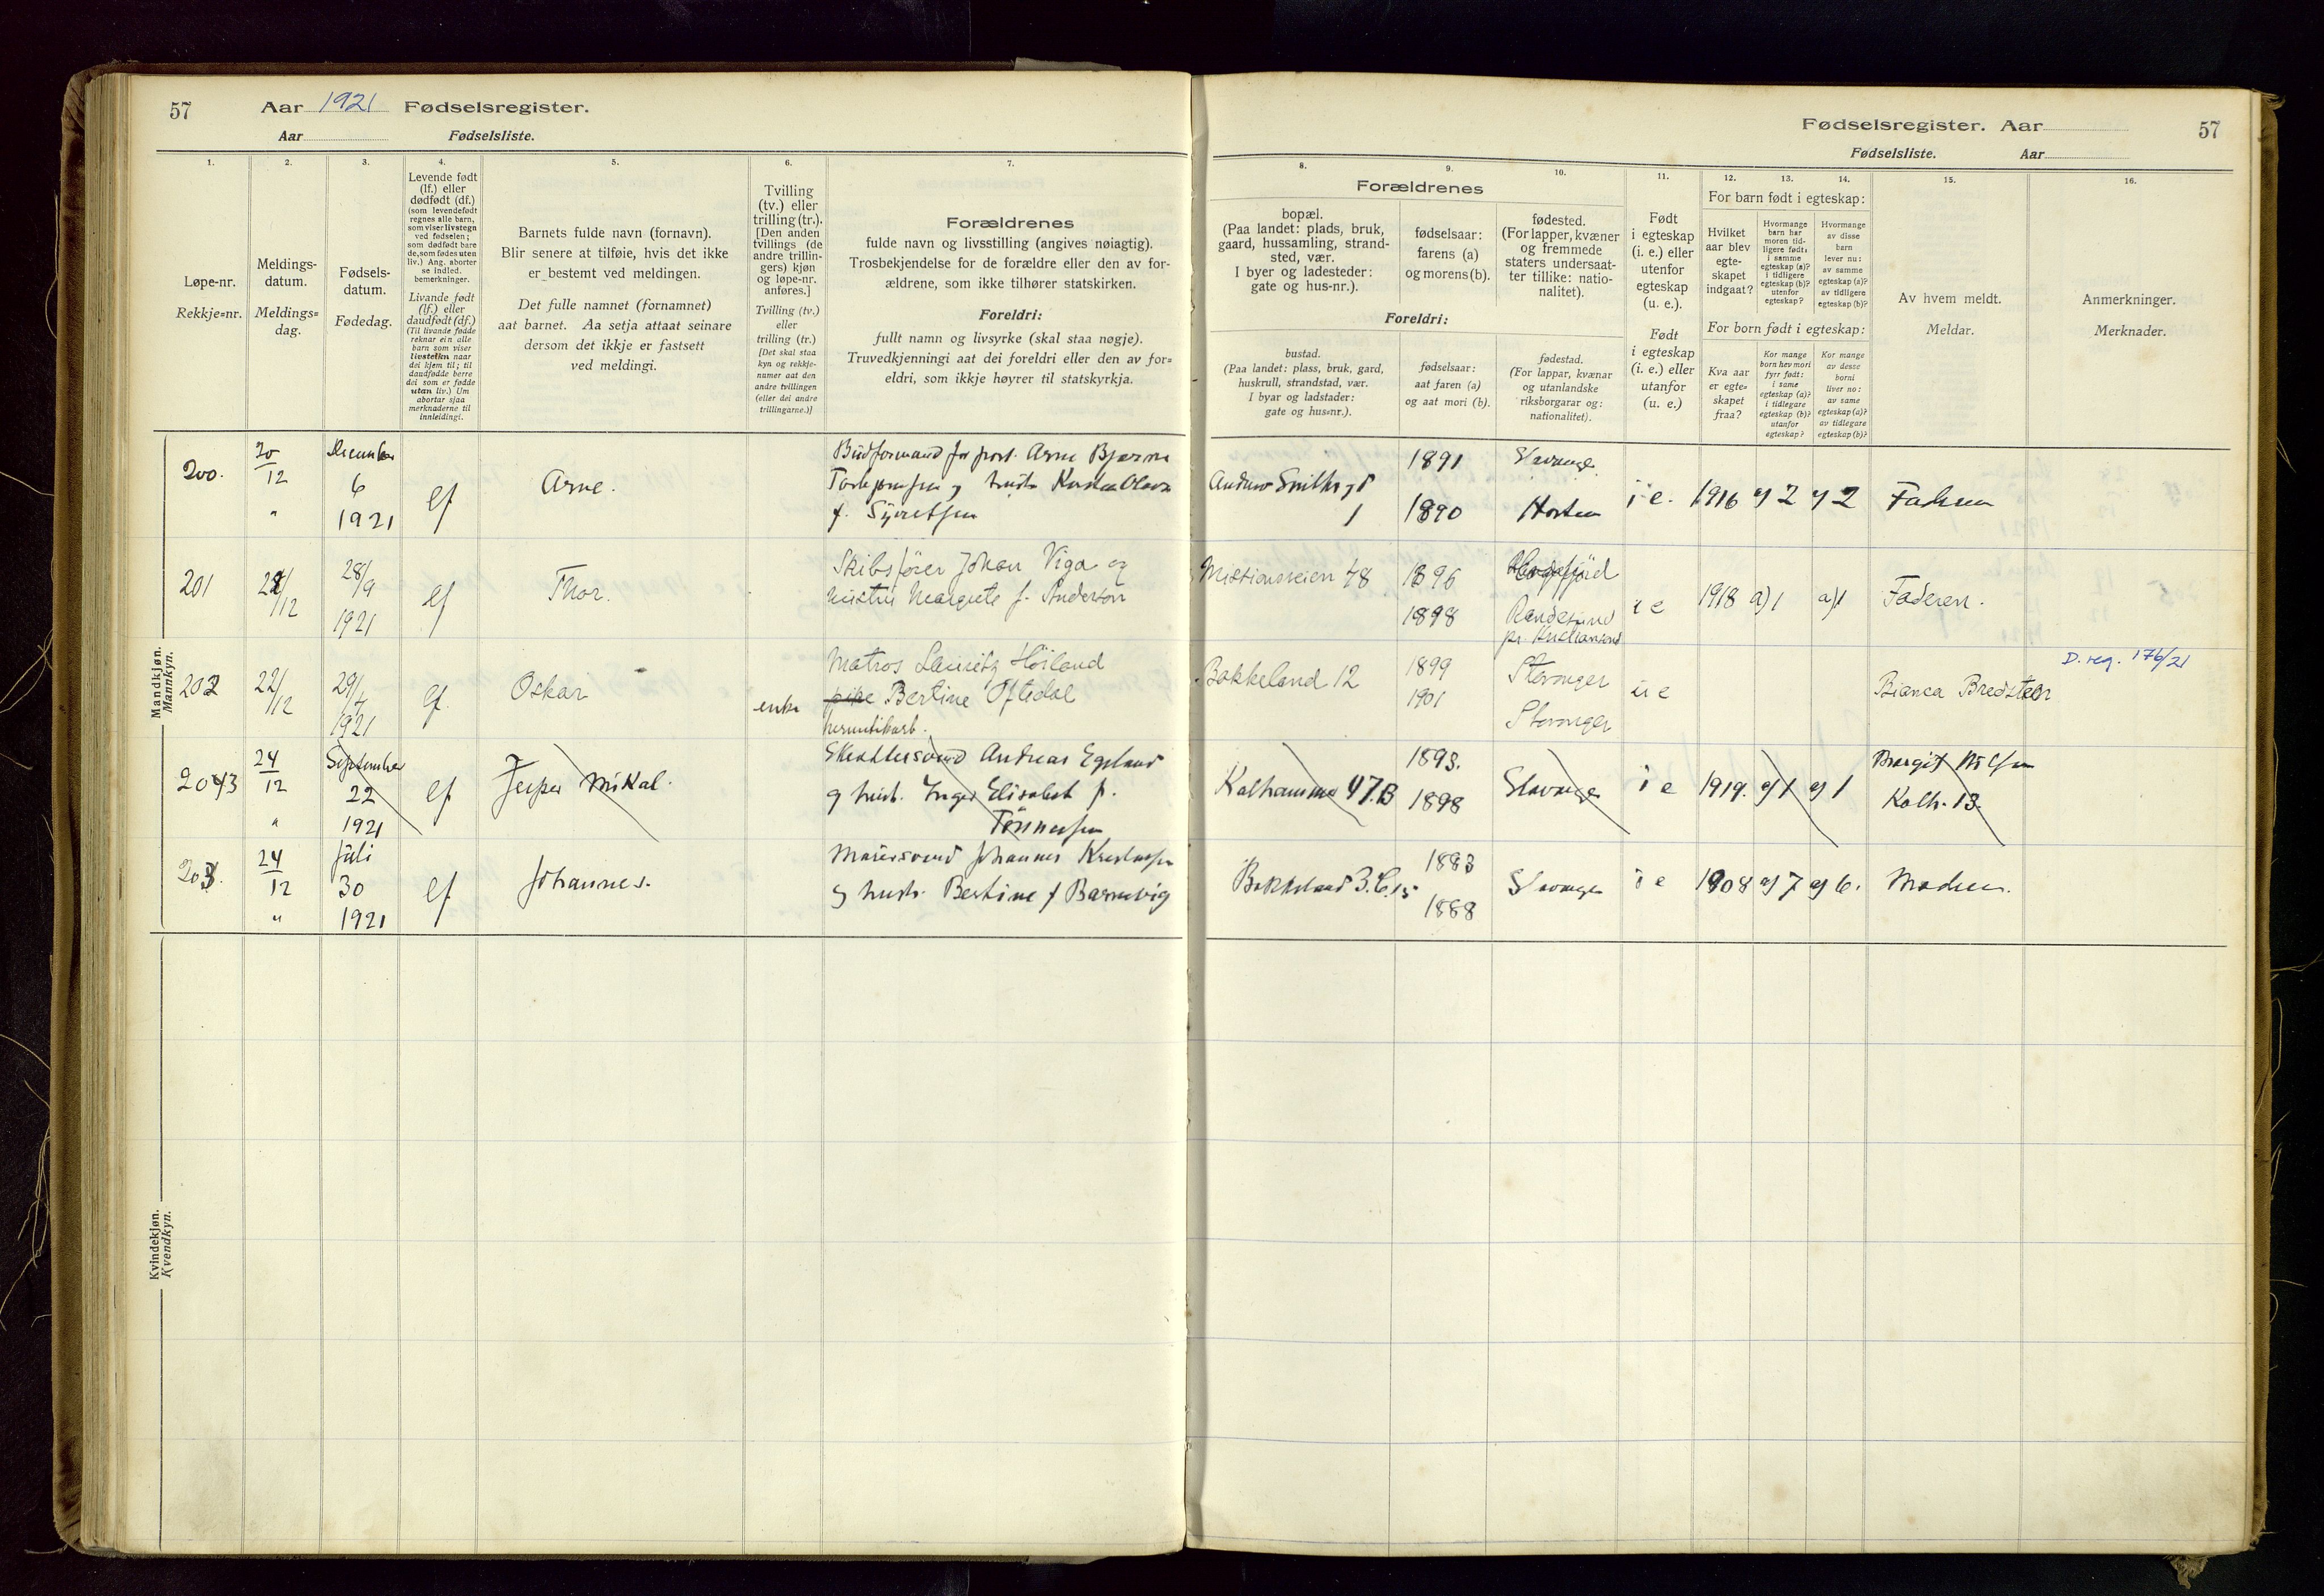 57
Aar 1921 Fødselsregister.
Aar Fødselsliste.
1.
Løpe-nr.
Rekkje=nr.
2.
Meldings-
datum.
Meldings=
dag.
3.
Fødsels-
datum.
Fødedag.
4.
Levende født
(lf.) eller
dødfødt (df.)
(som levendefødt
regnes alle barn,
som viser livstegn
ved fødselen;
som dødfødt bare
de, som fødes uten
liv.) Ang. aborter
se indled.
bemerkninger.
Livande født
(lf.) eller
daudfødt (df.)
(Til livande fødde
reknar ein alle
barn som viser
livsteikn naar
dei kjem til; til
daudfødde berre
dei som er fødde
utan liv.) Um
abortar sjaa
merknaderne til
innleidingi.
5.
Barnets fulde navn (fornavn).
Blir senere at tilføie, hvis det ikke
er bestemt ved meldingen.
Det fulle namnet (fornamnet)
aat barnet. Aa setja attaat seinare
dersom det ikkje er fastsett
ved meldingi.
6.
Tvilling
(tv.) eller
trilling (tr.).
[Den anden
tvillings (de
andre trillin-
gers) kjøn
og løpe-nr.
anføres.]
Tvilling (tv.)
eller
trilling (tr.)
[Det skal staa
kyn og rekkje-
numer aat den
andre tvillingen
(eller dei andre
trillingarne.)]
7.
Forældrenes
fulde navn og livsstilling (angives nøiagtig).
Trosbekjendelse for de forældre eller den av for-
ældrene, som ikke tilhører statskirken.
Foreldri:
fullt namn og livsyrke (skal staa nøgje).
Truvedkjenningi aat dei foreldri eller den av for=
eldri, som ikkje høyrer til statskyrkja.
Fødselsregister. Aar
57
Fødselsliste. Aar
8.
9.
10.
Forældrenes
bopæl.
(Paa landet: plads, bruk,
gaard, hussamling, strand-
sted, vær.
I byer og ladesteder:
gate og hus-nr.).
fødselsaar:
farens (a)
og morens (b).
fødested.
(For lapper, kvæner
og fremmede
staters undersaat-
ter tillike: natio-
nalitet).
Foreldri:
bustad.
(Paa landet: plass, bruk, gard,
huskrull, strandstad, vær.
I byar og ladstader:
gate og hus=nr.).
fødselsaar:
aat faren (a)
og aat mori (b).
fødestad.
(For lappar, kvænar
og utanlandske
riksborgarar og:
nationalitet).
11.
Født
i egteskap
(i. e.) eller
utenfor
egteskap
(u. e.).
Født
i egteskap
(i. e.) eller
utanfor
(u. e.)
12.
13.
14.
For barn født i egteskap:
Hvilket
aar blev
egte-
skapet
indgaat?
Hvormange
barn har
moren tid-
ligere født:
i samme
egteskap (a)?
i tidligere
egteskap (b)?
utenfor
egteskap?
Hvormange
av disse
barn
lever nu:
av samme
egteskap (a)?
av tidligere
egteskap (b)?
For born født i egteskap:
Kva aar
er egte=
skapet
fraa?
Kor mange
born hev mori
fyrr født:
i same
egteskap (a)?
i tidlegare
egteskap (b)?
utanfor
egteskap?
Kor mange
av desse
borni
liver no:
av same
egteskap (a)?
av tidlegare
egteskap (b)?
15.
Av hvem meldt.
Meldar.
16.
Anmerkninger.
Merknader.
Mandkjøn.
Mannkyn.
200.
20/12
"
December
6
1921
lf
Arne.
Arne Bjarne
Andrew Smiths gt
1
1891
1890
Stavanger
Horten
i e.
1916
a) 2
a) 2
Faderen
201
28/9
1921
lf
Thor.
Skibsfører Johan Viga og
hustru Margrete f. Anderson
Missionsveien 48
1896
1898
Randesund
pr. Kristiansand
i e
1918
a) 1
a) 1
Faderen.
202
22/12
1921
lf.
Oskar
enke
Matros Lauritz Höiland
pike Bertine Oftedal
hermetikarb.
Bakkeland 12
1899
1901
Stavanger
Stavanger
u e
Bianca Bredsteen
D. reg. 176/21
24/12
"
September
22
1921
lf
Jesper Mikal.
Andreas Egeland
og hustr. Inger Elisabet f.
Tönnessen
Kalhammer 47.B
1893.
1898
Stavanger
i e
1919.
a) 1
a) 1
Kalh. 13.
203.
24/12
"
Juli
30
1921
lf
Johannes.
Malersvend Johannes
og hustr. Bertine f Barnevig
Bakkeland
1883
1888
Stavanger
i e
1908
a) 7
a) 6.
Moderen.
Kvindekjøn.
Kvendkyn.